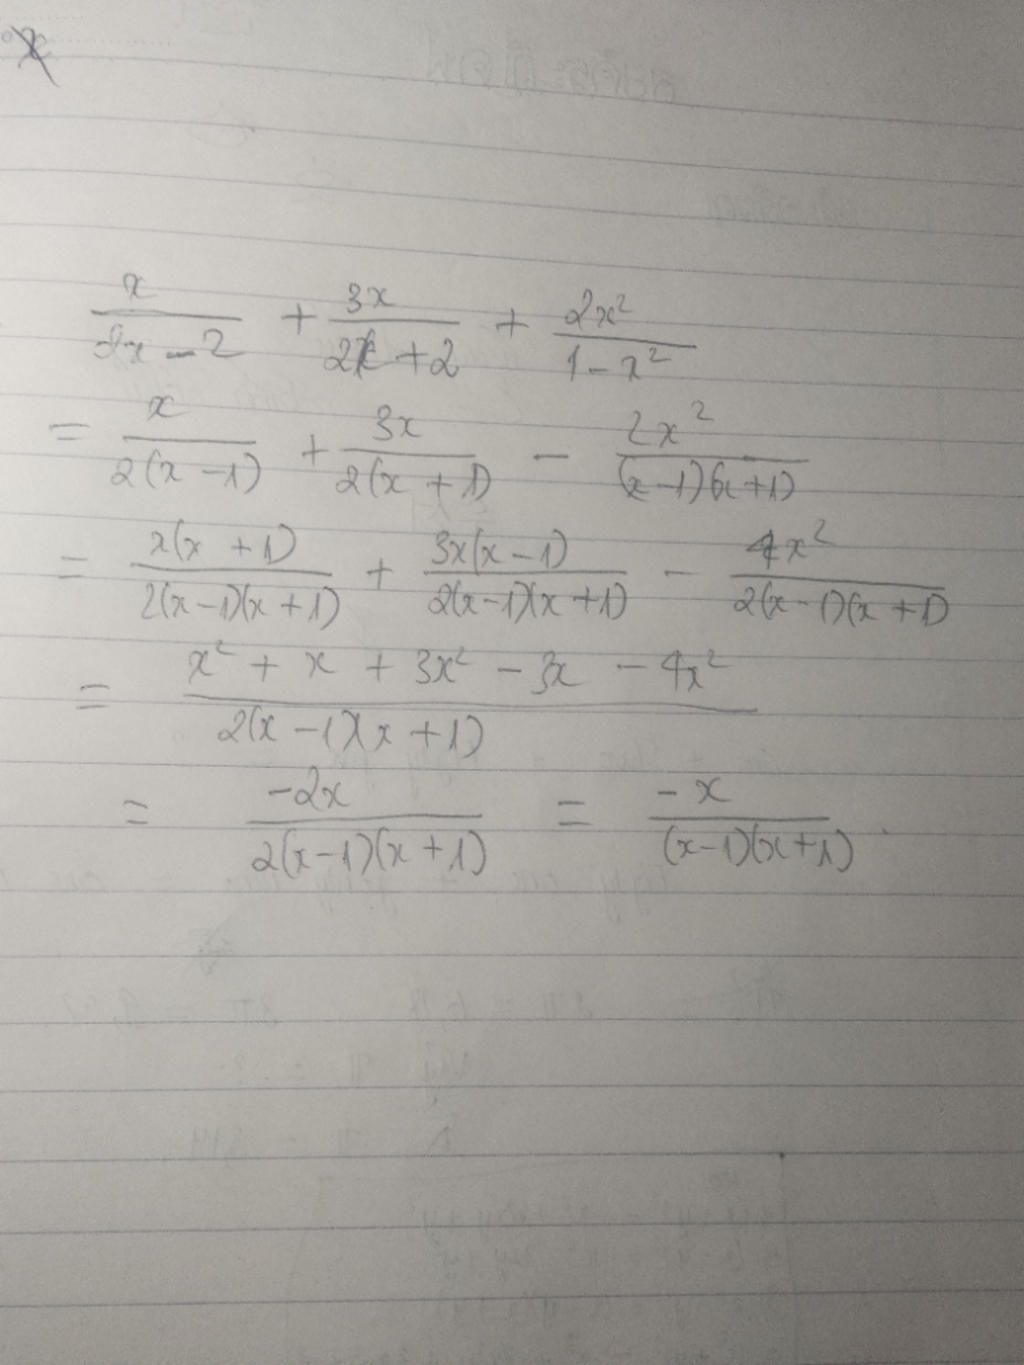 x/(2x - 2) + 3x/(2x + 2) + 2x²/(1 - x²)
= x/(2(x - 1)) + 3x/(2(x + 1)) - 2x²/((x - 1)(x + 1))
= x(x + 1)/(2(x - 1)(x + 1)) + 3x(x - 1)/(2(x - 1)(x + 1)) - 4x²/(2(x - 1)(x + 1))
= (x² + x + 3x² - 3x - 4x²)/(2(x - 1)(x + 1))
= -2x/(2(x - 1)(x + 1)) = -x/((x - 1)(x + 1)).